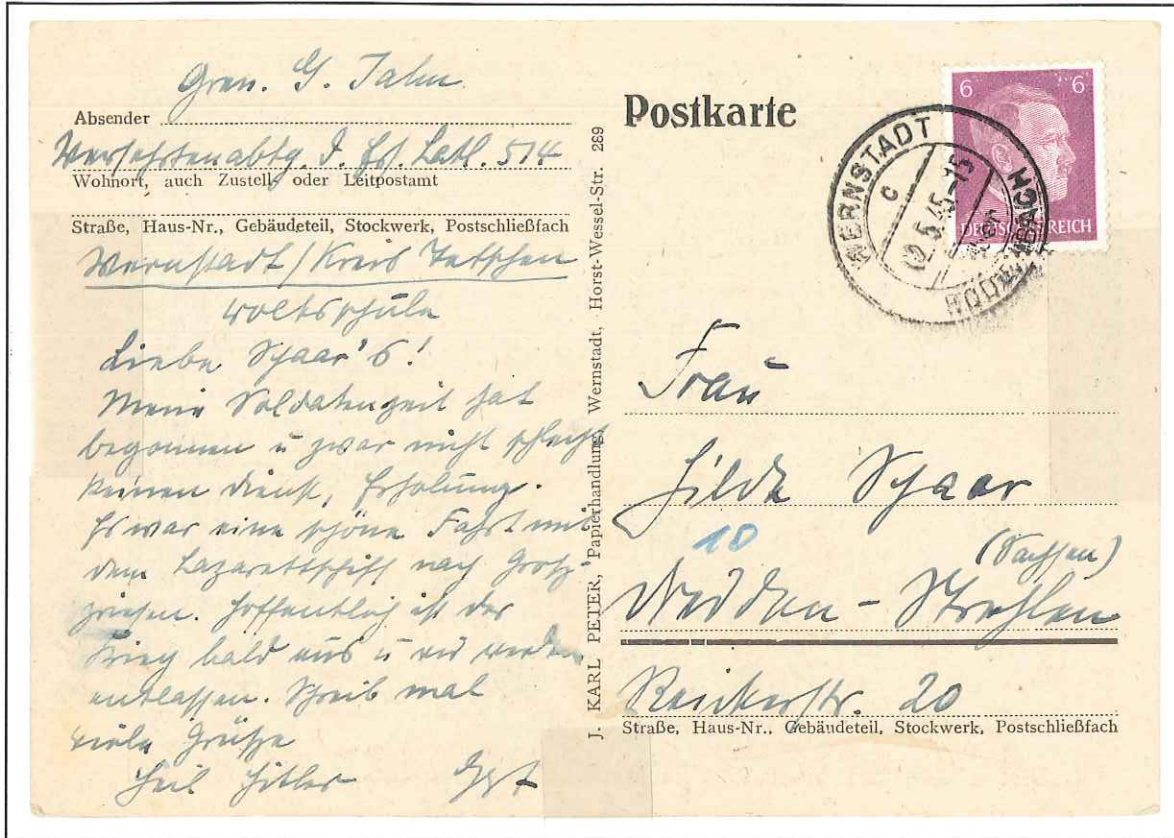 Gren. G. Jahn
Absender
Versehrtenabtg. d. Ers. Batl. 514
Wohnort, auch Zustell- oder Leitpostamt
Straße, Haus-Nr., Gebäudeteil, Stockwerk, Postschließfach
Wernstadt / Kreis Tetschen
Volksschule
Liebe Schaar's!
Meine Soldatenzeit hat
begonnen u zwar nicht schlecht
keinen Dienst, Erholung.
Es war eine schöne Fahrt mit
dem Lazarettschiff nach Groß-
priesen. Hoffentlich ist der
Krieg bald aus u wir werden
entlassen. Schreib mal
viele Grüße
Heil Hitler
J. KARL PETER, Papierhandlung, Wernstadt, Horst-Wessel-Str. 289
Postkarte
6 6
DEUTSCHES REICH
WERNSTADT
c
2.5.45-15
BODENBACH
Frau
Hilde Schaar
10 (Sachsen)
Dresden - Strehlen
Reickerstr. 20
Straße, Haus-Nr., Gebäudeteil, Stockwerk, Postschließfach